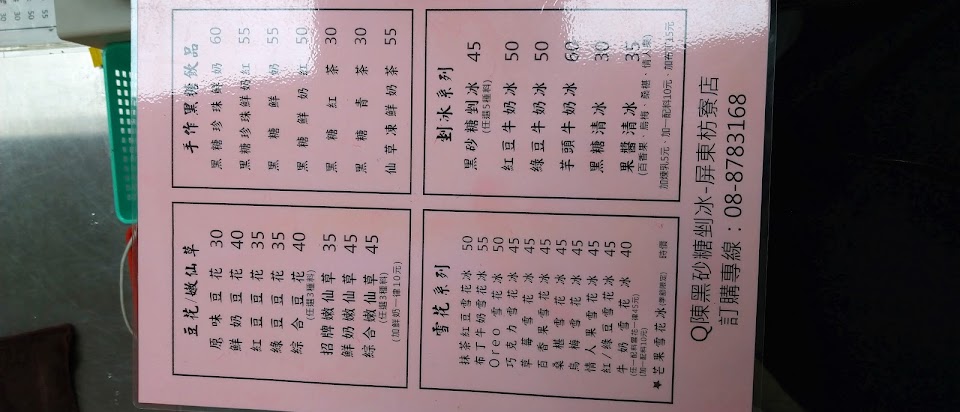 豆花/嫩仙草
原味豆花 30
鮮奶豆花 40
紅豆豆花 35
綠豆豆花 35
綜合豆花 40
(任選3種料)
招牌嫩仙草 35
鮮奶嫩仙草 45
綜合嫩仙草 45
(任選3種料)
(加鮮奶一律10元)
手作黑糖飲品
黑糖珍珠鮮奶 60
黑糖珍珠鮮奶紅 55
黑糖鮮奶 55
黑糖鮮奶紅 50
黑糖紅茶 30
黑糖青茶 30
仙草凍鮮奶茶 55
雪花系列
抹茶紅豆雪花冰 50
布丁牛奶雪花冰 55
Oreo雪花冰 50
巧克力雪花冰 45
草莓雪花冰 45
百香果雪花冰 45
桑椹雪花冰 45
烏梅雪花冰 45
情人果雪花冰 45
紅/綠豆雪花冰 45
牛奶雪花冰 40
(任一配料雪花一律45元)
(加一配料10元)
★芒果雪花冰(季節限定) 時價
剉冰系列
黑砂糖剉冰 45
(任選5種料)
紅豆牛奶冰 50
綠豆牛奶冰 50
芋頭牛奶冰 60
黑糖清冰 30
果醬清冰 35
(百香果、烏梅、桑椹、情人果)
加煉乳5元、加一配料10元、加布丁15元
Q陳黑砂糖剉冰-屏東枋寮店
訂購專線：08-8783168